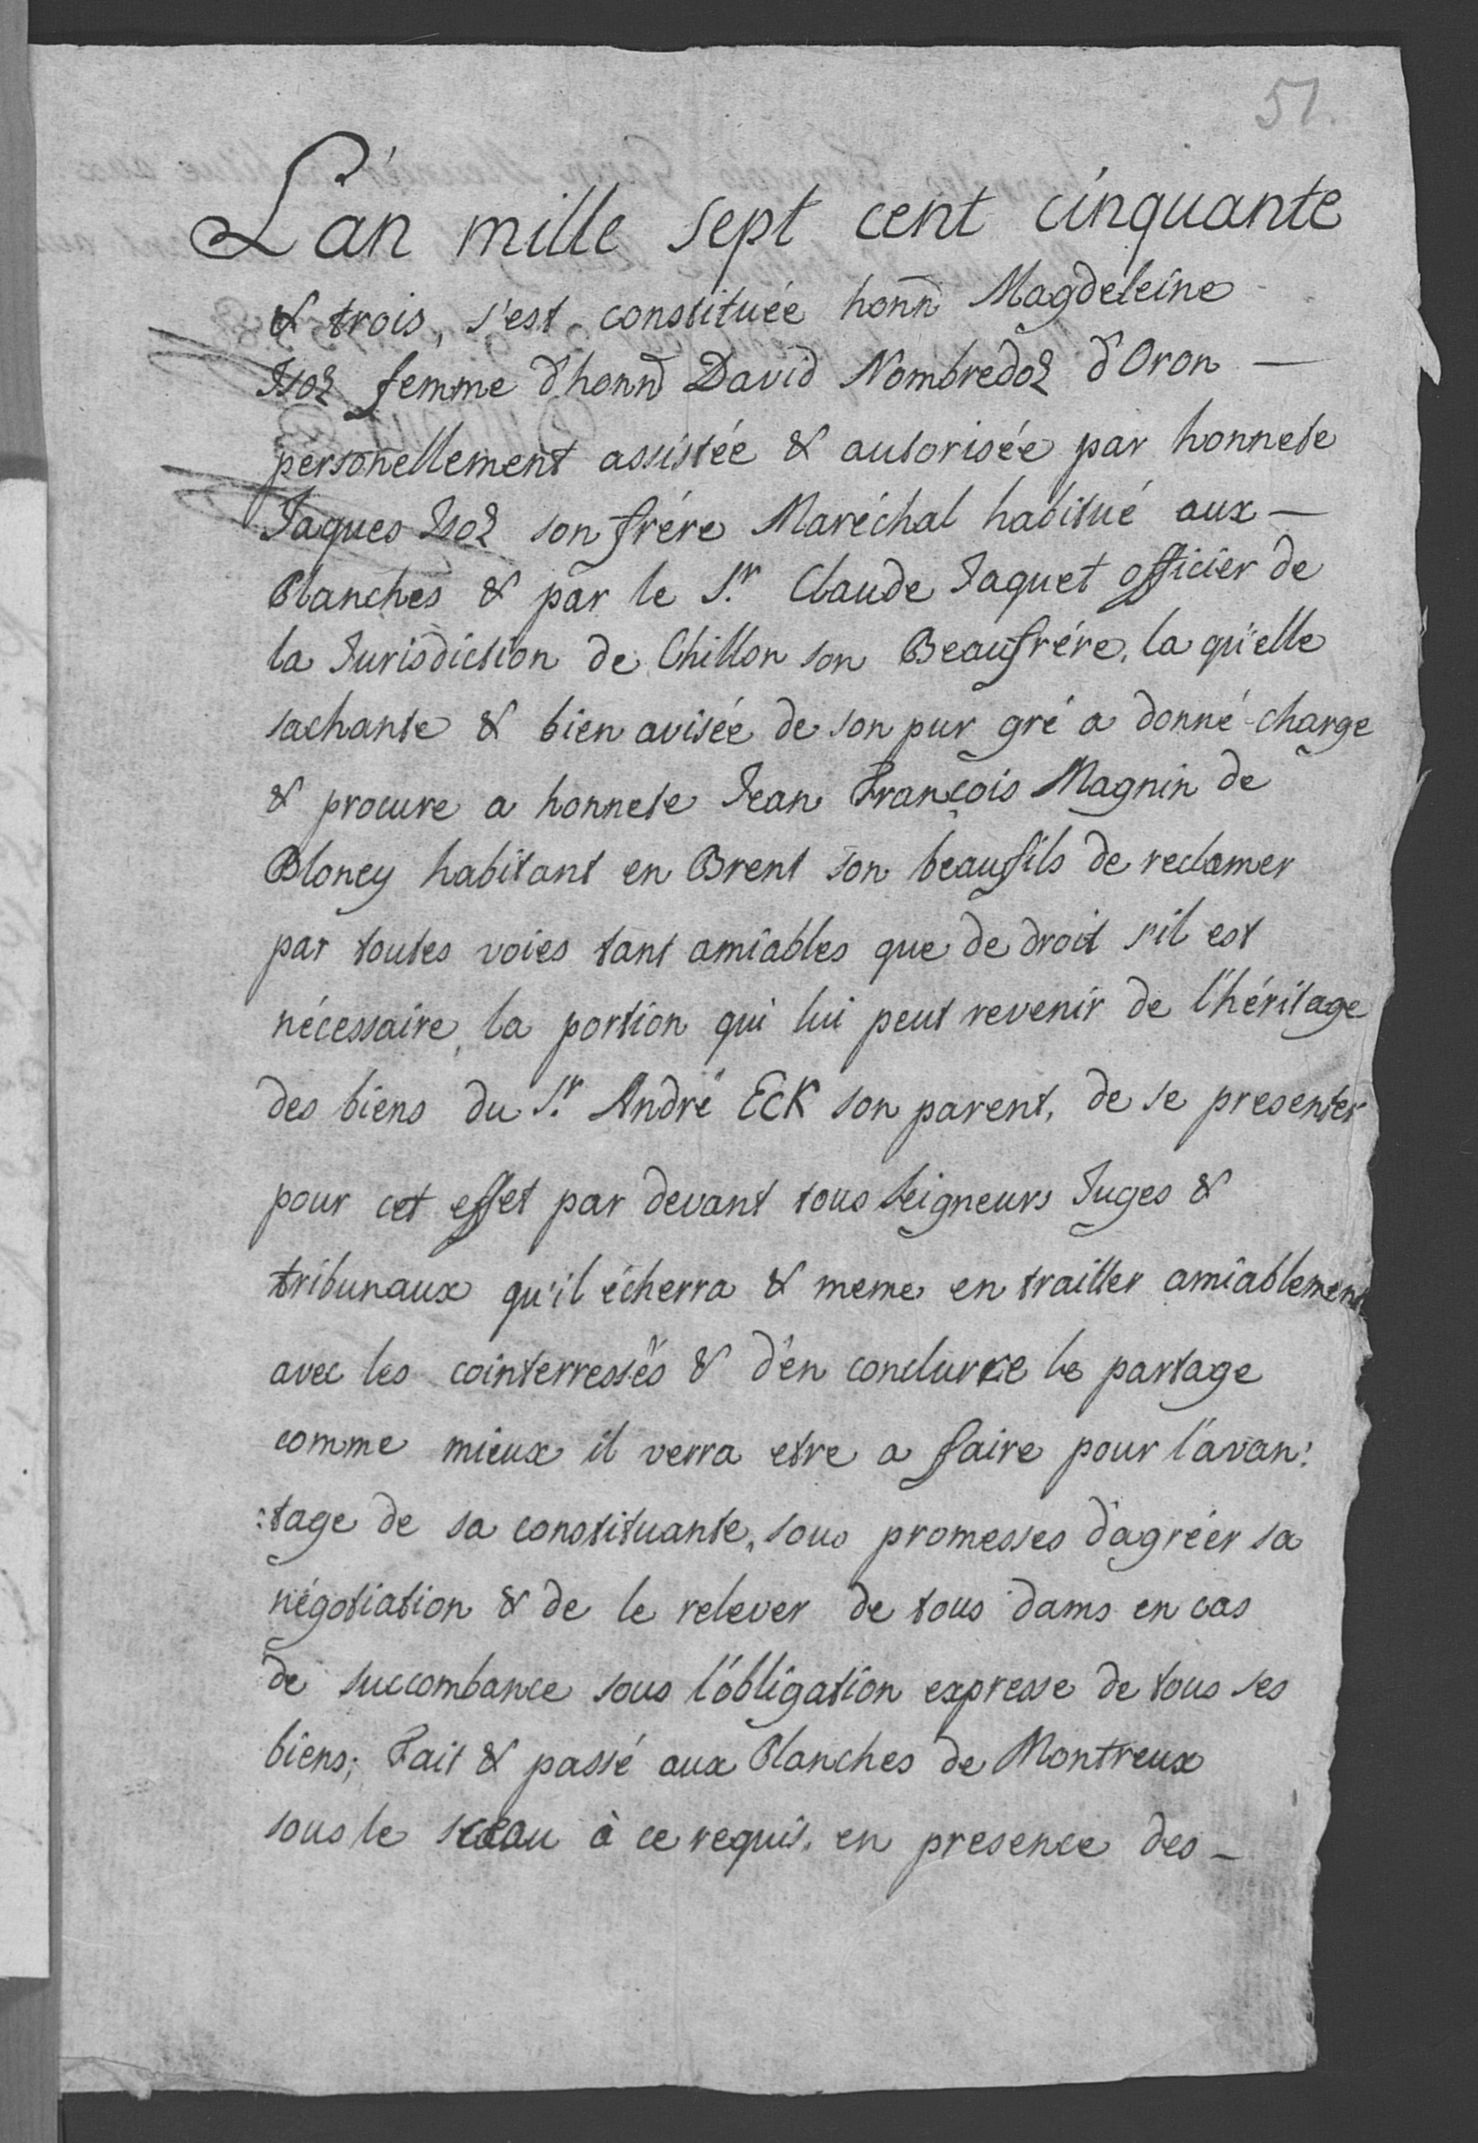 51.
L'an mille sept cent cinquante
& trois, s'est constituée honñ Magdeleine
Isoz femme d'honñ David Nombredoz d'Oron —
personellement assistée & autorisée par honnete
Jaques Isoz son frére Maréchal habitué aux —
Planches & par le Sr. Claude Jaquet officier de
la Jurisdiction de Chillon son Beaufrére, la qu'elle
sachante & bien avisée de son pur gré a donné charge
& procure a honnete Jean François Magnin de
Bloney habitant en Brent son beaufils de reclamer
par toutes voies tant amiables que de droit s'il est
nécessaire, la portion qui lui peut revenir de l'héritage
des biens du Sr. André Eck son parent, de se presenter
pour cet effet par devant tous Seigneurs Juges &
tribunaux qu'il écherra & meme en traitter amiablement
avec les cointerressés & d'en conclurre le partage
comme mieux il verra etre a faire pour l'avan:
:tage de sa constituante, sous promesses d'agréer sa
négotiation & de le relever de tous dams en cas
de succombance sous l'obligation expresse de tous ses
biens; Fait & passé aux Planches de Montreux
sous le sceau à ce requis, en presence des —